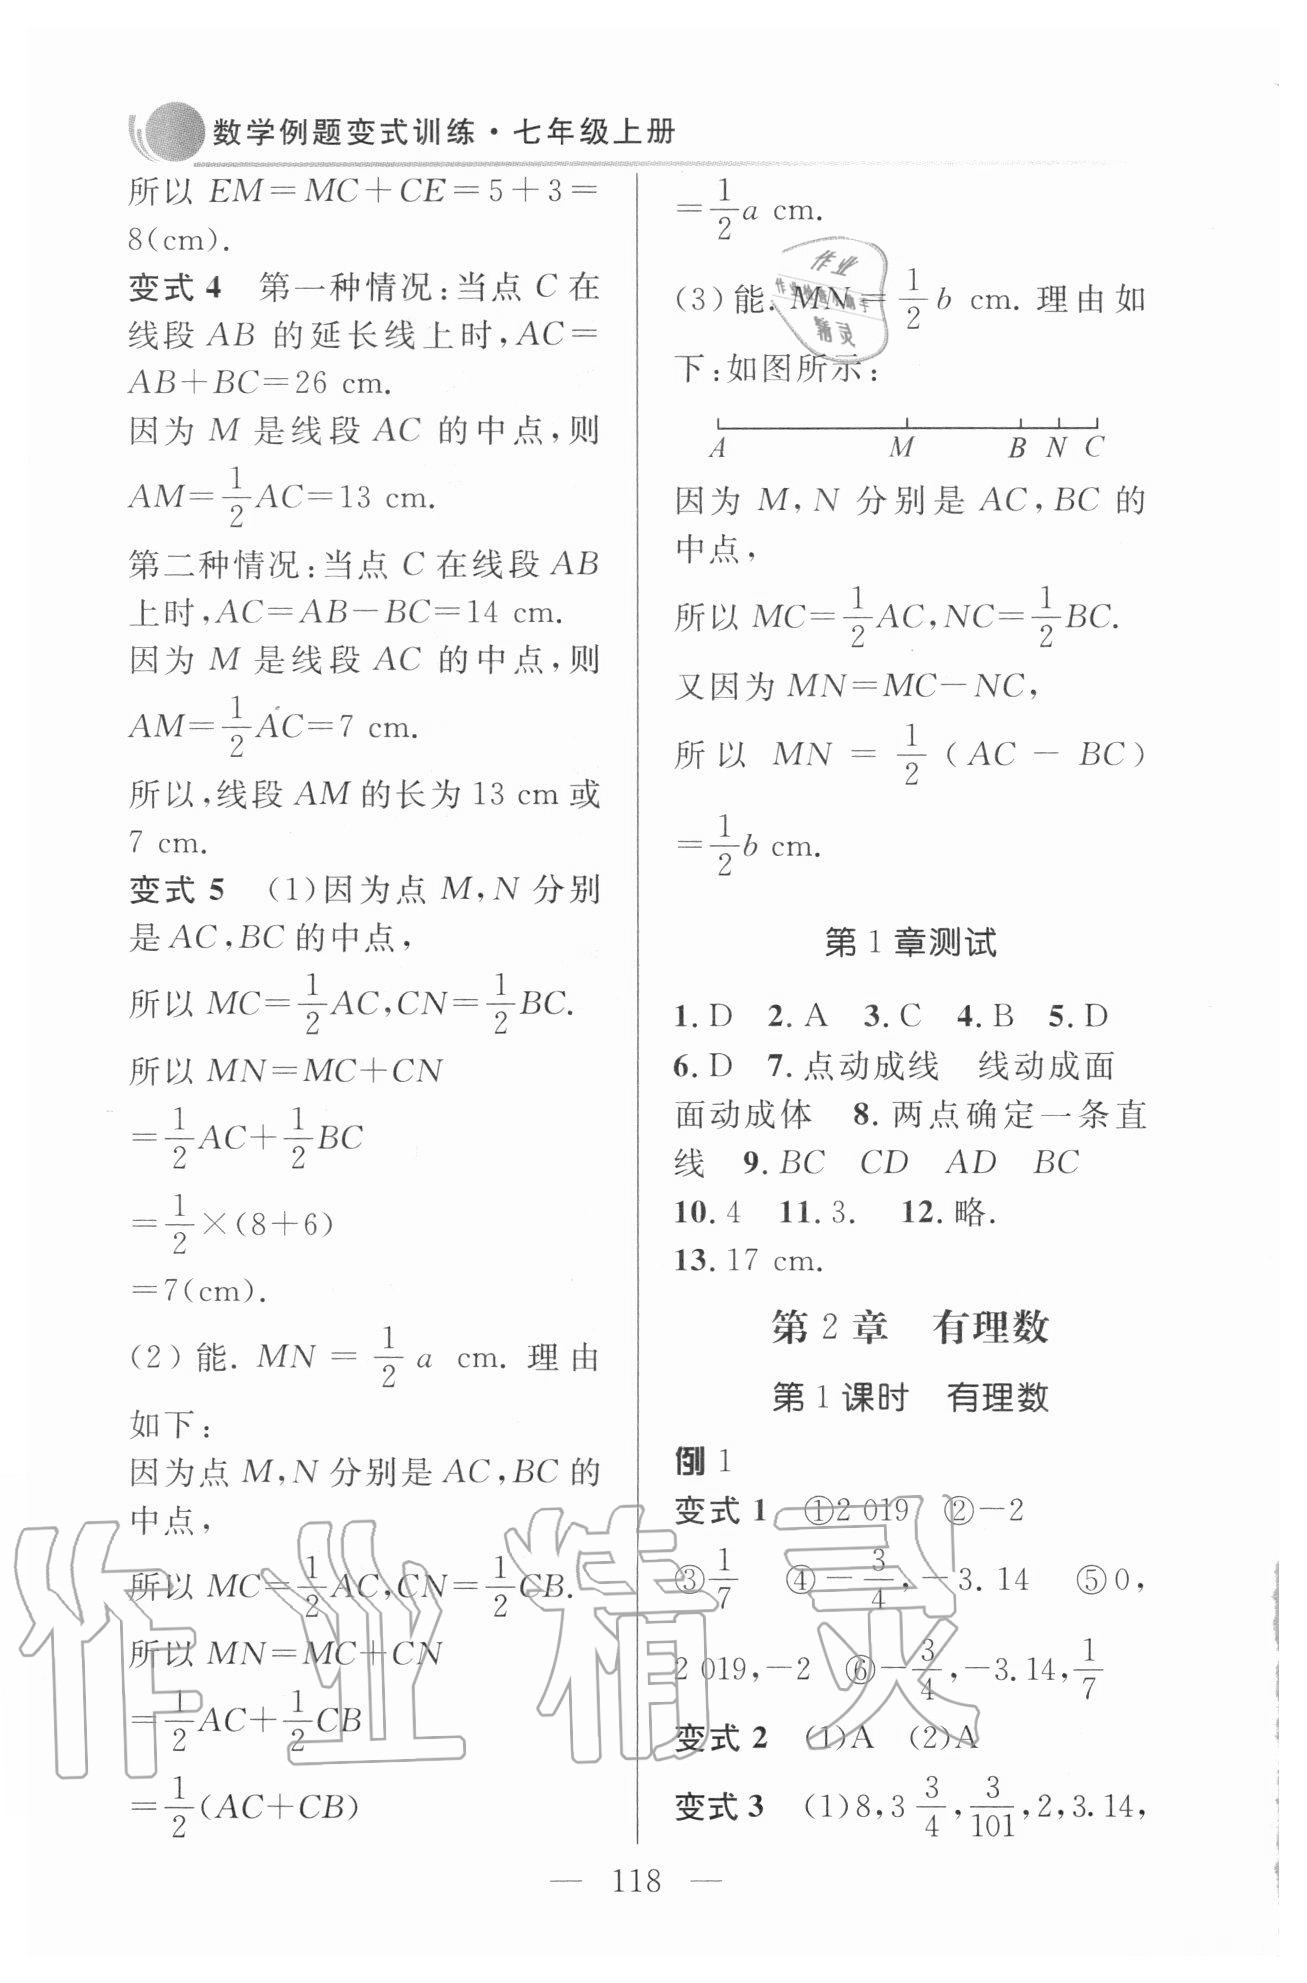 数学例题变式训练·七年级上册
所以 EM=MC+CE=5+3=
8(cm).
变式 4 第一种情况:当点 C 在
线段 AB 的延长线上时,AC=
AB+BC=26 cm.
因为 M 是线段 AC 的中点,则
AM=1/2AC=13 cm.
第二种情况:当点 C 在线段 AB
上时,AC=AB-BC=14 cm.
因为 M 是线段 AC 的中点,则
AM=1/2AC=7 cm.
所以,线段 AM 的长为 13 cm 或
7 cm.
变式 5 (1)因为点 M,N 分别
是 AC,BC 的中点,
所以 MC=1/2AC,CN=1/2BC.
所以 MN=MC+CN
=1/2AC+1/2BC
=1/2×(8+6)
=7(cm).
(2)能. MN=1/2a cm. 理由
如下:
因为点 M,N 分别是 AC,BC 的
中点,
所以 MC=1/2AC,CN=1/2CB.
所以 MN=MC+CN
=1/2AC+1/2CB
=1/2(AC+CB)
=1/2a cm.
(3)能. MN=1/2b cm. 理由如
下:如图所示:
A M B N C
因为 M,N 分别是 AC,BC 的
中点,
所以 MC=1/2AC,NC=1/2BC.
又因为 MN=MC-NC,
所以 MN=1/2(AC-BC)
=1/2b cm.
第 1 章测试
1.D 2.A 3.C 4.B 5.D
6.D 7.点动成线 线动成面
面动成体 8.两点确定一条直
线 9.BC CD AD BC
10.4 11.3. 12.略.
13.17 cm.
第 2 章 有理数
第 1 课时 有理数
例 1
变式 1 ①2 019 ②-2
③1/7 ④-3/4,-3.14 ⑤0,
2 019,-2 ⑥-3/4,-3.14,1/7
变式 2 (1)A (2)A
变式 3 (1)8,3 3/4,3/101,2,3.14,
— 118 —
作业
精灵
作业精灵